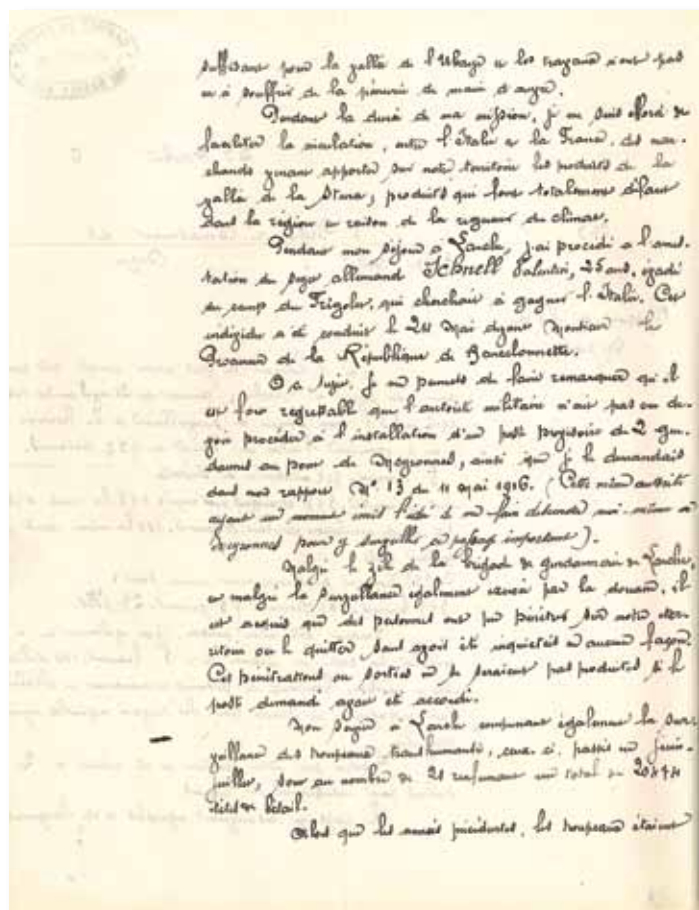 suffisant pour la vallée de l'Ubaye et les travaux n'ont pas
eu à souffrir de la pénurie de main d'œuvre.
Pendant la durée de ma mission, je me suis efforcé de
faciliter la circulation, entre l'Italie et la France, des mar-
chands venant apporter sur notre territoire les produits de la
vallée de la Stura, produits qui font totalement défaut
dans la région en raison de la rigueur du climat.
Pendant mon séjour à Larche, j'ai procédé à l'arres-
tation du sujet allemand Schnell Valentin, 25 ans, évadé
du camp du Frigolet, qui cherchait à gagner l'Italie. Cet
individu a été conduit le 2 Mai devant Monsieur le
Procureur de la République de Barcelonnette.
A ce sujet, je me permets de faire remarquer qu'il
est fort regrettable que l'autorité militaire n'ait pas cru de-
voir procéder à l'installation d'un poste provisoire de 2 gen-
darmes au pont de Meyronnes, ainsi que je le demandais
dans mon rapport N° 13 du 11 Mai 1916. (Cette même autorité
ayant un moment émis l'idée de me faire descendre moi-même à
Meyronnes pour y surveiller ce passage important).
Malgré le zèle de la brigade de gendarmerie de Larche,
et malgré la surveillance également exercée par la douane, il
est acquis que des personnes ont pu pénétrer sur notre terri-
toire ou le quitter sans avoir été inquiétées en aucune façon.
Ces pénétrations ou sorties ne se seraient pas produites si le
poste demandé avait été accordé.
Mon séjour à Larche comprenant également la sur-
veillance des troupeaux transhumants, ceux-ci, passés en juin-
juillet, sont au nombre de 21 renfermant un total de
têtes de bétail.
Alors que les années précédentes, les troupeaux étaient